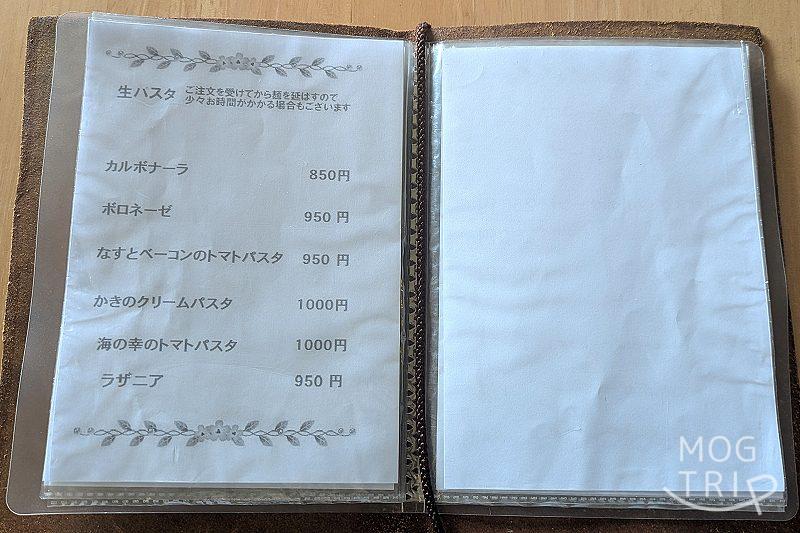 生パスタ ご注文を受けてから麺を延ばすので
少々お時間がかかる場合もございます
カルボナーラ 850円
ボロネーゼ 950 円
なすとベーコンのトマトパスタ 950 円
かきのクリームパスタ 1000円
海の幸のトマトパスタ 1000円
ラザニア 950 円
MOG
TRIP